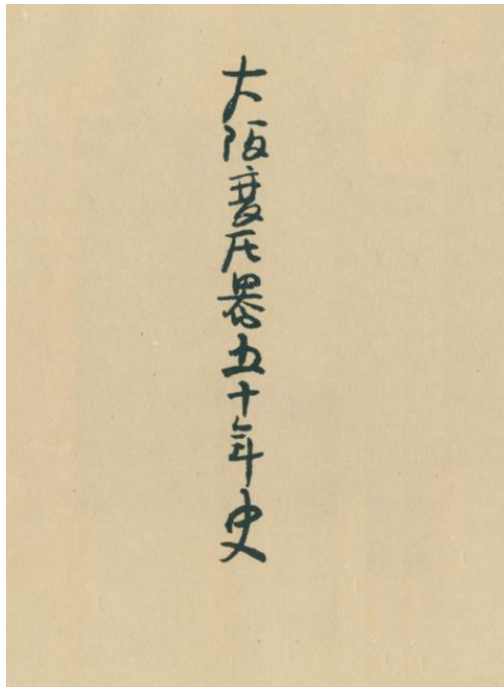 大阪変圧器五十年史